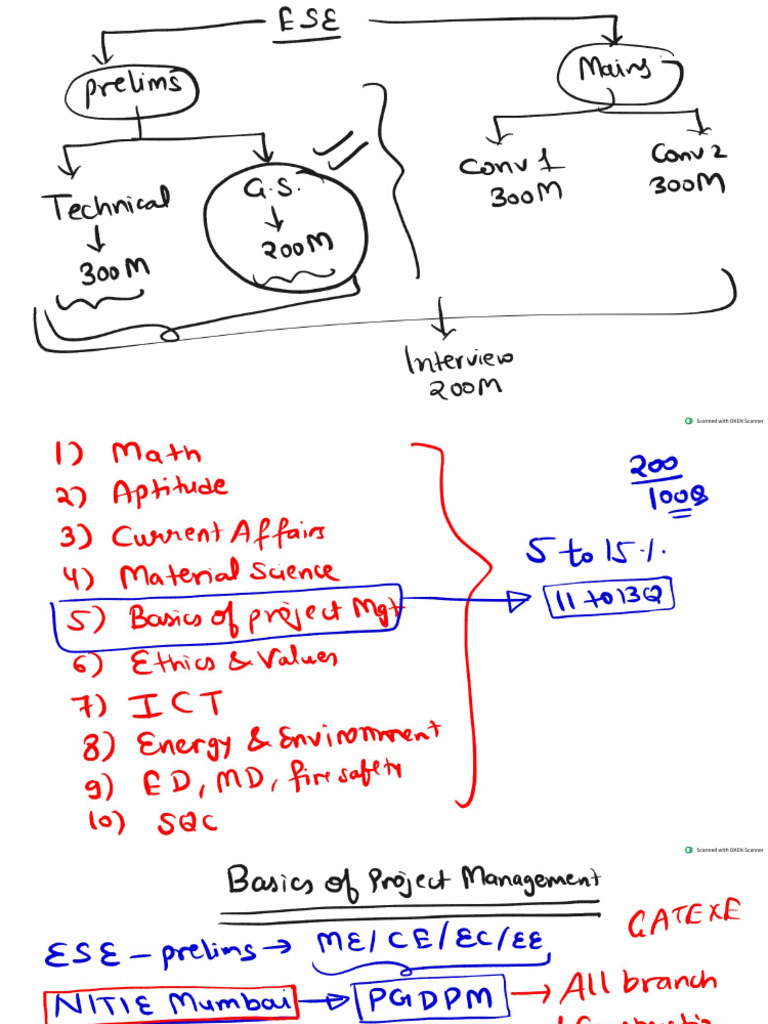 ESE
Prelims
Mains
Technical
300M
G.S.
200M
Conv 1
300M
Conv 2
300M
Interview
200M
Scanned with OKEN Scanner
1) Math
2) Aptitude
3) Current Affairs
4) Material Science
5) Basics of project Mgt
6) Ethics & Values
7) ICT
8) Energy & Environment
9) ED, MD, fire safety
10) SQC
200
100Q
5 to 15%
11 to 13Q
Scanned with OKEN Scanner
Basics of Project Management
GATE XE
ESE - prelims → ME/CE/EC/EE
NITIE Mumbai → PGDPM → All branch